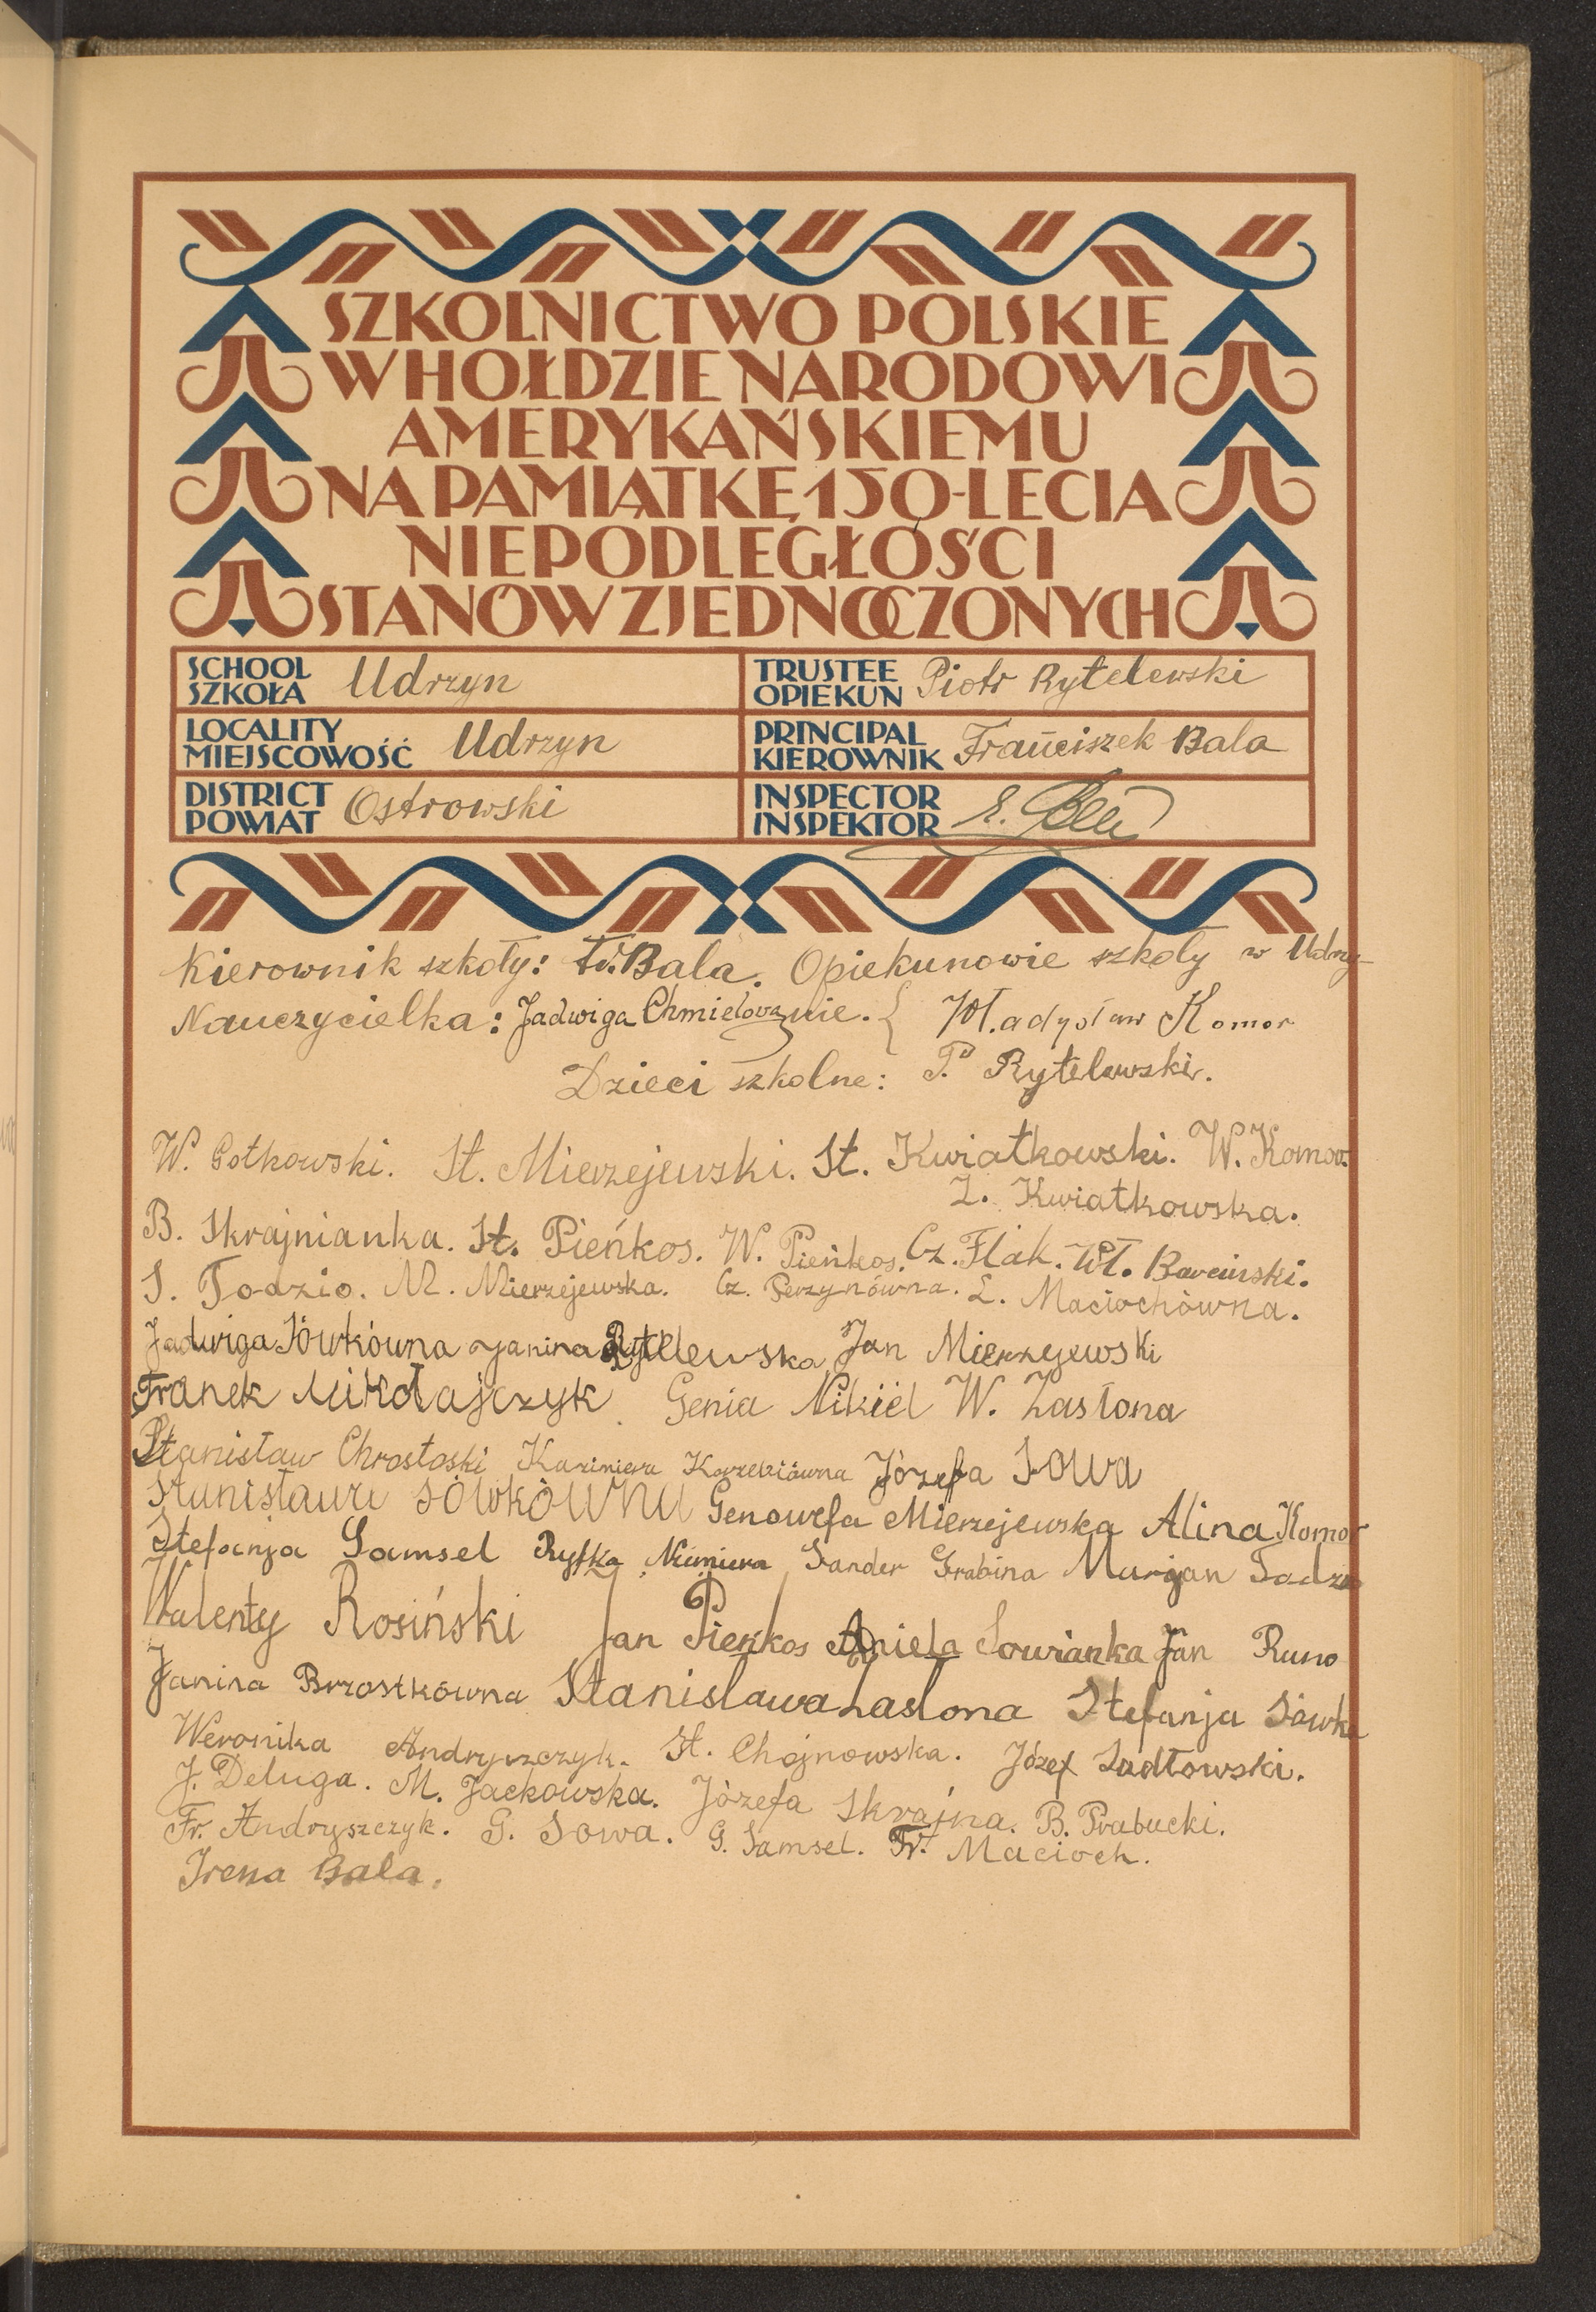 SZKOLNICTWO POLSKIE
W HOŁDZIE NARODOWI
AMERYKAŃSKIEMU
NA PAMIĄTKĘ 150-LECIA
NIEPODLEGŁOŚCI
STANÓW ZJEDNOCZONYCH
SCHOOL SZKOŁA Udrzyn
TRUSTEE OPIEKUN Piotr Rytelewski
LOCALITY MIEJSCOWOŚĆ Udrzyn
PRINCIPAL KIEROWNIK Franciszek Bala
DISTRICT POWIAT Ostrowski
INSPECTOR INSPEKTOR
Kierownik szkoły: Fr. Bala. Opiekunowie szkoły w Udrzy-
Nauczycielka: Jadwiga Chmielowa nie. { Wł.adysław Komor
Dzieci szkolne: P. Rytelewski.
W. Gotkowski. St. Mierzejewski. St. Kwiatkowski. W. Komor.
Z. Kwiatkowska.
B. Skrajnianka. St. Pieńkos. W. Pieńkos. Cz. Flak. Wł. Barciński.
S. Todzio. M. Mierzejewska. Cz. Perzynówna. L. Maciochówna.
Jadwiga Sówkówna Janina Rytelewska Jan Mierzyjewski
Franek Mikołajczyk Genia Nikiel W. Zasłona
Stanisław Chrostoski Kazimiera Józefa Sowa
Stanisława Sówkówna Genowefa Mierzejewska Alina Komor
Stefanja Samsel Ryfka Sander Grabina Marjan Todzio
Walenty Rosiński Jan Pienkos Aniela Sowianka Jan Runo
Janina Brzostkówna Stanisława Zasłona Stefanja Sówka
Weronika Andryszczyk. St. Chojnowska. Józef Sadłowski.
J. Deluga. M. Jackowska. Józefa Skrajna. B. Prabucki.
Fr. Andryszczyk. G. Sowa. G. Samsel. Fr. Macioch.
Irena Bala.